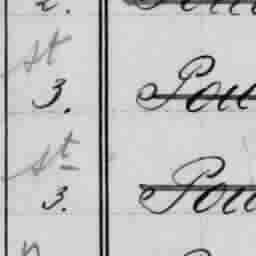 2.
st
3. Pou
st
3. Pou